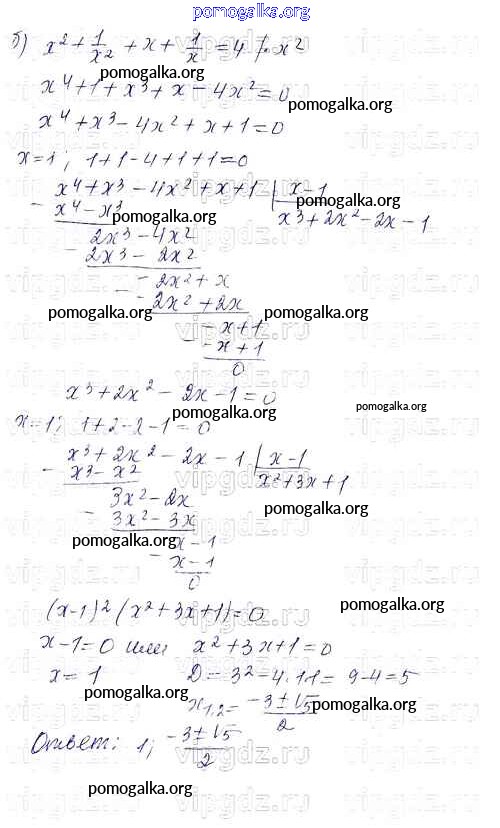 pomogalka.org
б) x² + 1/x² + x + 1/x = 4 | · x²
pomogalka.org
x⁴ + 1 + x³ + x − 4x² = 0
pomogalka.org
x⁴ + x³ − 4x² + x + 1 = 0
x = 1; 1 + 1 − 4 + 1 + 1 = 0
pomogalka.org
− x⁴ + x³ − 4x² + x + 1 | x − 1
pomogalka.org
x⁴ − x³ x³ + 2x² − 2x − 1
pomogalka.org
2x³ − 4x²
− 2x³ − 2x²
− −2x² + x
pomogalka.org
−2x² + 2x
pomogalka.org pomogalka.org
−x + 1
− −x + 1
0
x³ + 2x² − 2x − 1 = 0
pomogalka.org pomogalka.org
x = 1; 1 + 2 − 2 − 1 = 0
− x³ + 2x² − 2x − 1 | x − 1
pomogalka.org
x³ − x² x² + 3x + 1
3x² − 2x
pomogalka.org
− 3x² − 3x
pomogalka.org
x − 1
− x − 1
0
(x−1)² (x² + 3x + 1) = 0
pomogalka.org
x − 1 = 0 или x² + 3x + 1 = 0
x = 1 D = 3² − 4·1·1 = 9 − 4 = 5
pomogalka.org pomogalka.org
x₁,₂ = (−3 ± √5)/2
Ответ: 1; (−3 ± √5)/2
pomogalka.org
vipgdz.ru